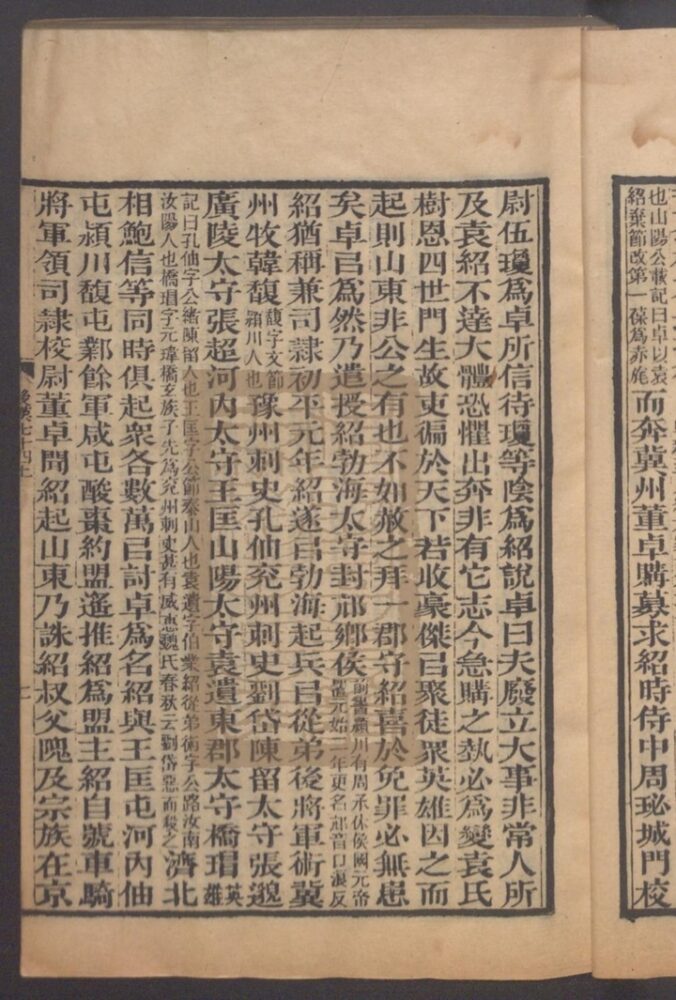 也山陽公載記曰卓以袁
紹棄節改第一葆爲赤旄
而奔冀州董卓購募求紹時侍中周珌城門校
尉伍瓊爲卓所信待瓊等陰爲紹說卓曰夫廢立大事非常人所
及袁紹不達大體恐懼出奔非有它志今急購之埶必爲變袁氏
樹恩四世門生故吏徧於天下若收豪傑㠯聚徒衆英雄因之而
起則山東非公之有也不如赦之拜一郡守紹喜於免罪必無患
矣卓㠯爲然乃遣授紹勃海太守封邟鄉侯
前書潁川有周承休侯國元帝
置元始二年更名邟音口浪反
紹猶稱兼司隸初平元年紹遂㠯勃海起兵㠯從弟後將軍術冀
州牧韓馥
馥字文節
潁川人也
豫州刺史孔伷兖州刺史劉岱陳留太守張邈
廣陵太守張超河內太守王匡山陽太守袁遺東郡太守橋瑁
英雄
記曰孔伷字公緒陳留人也王匡字公節泰山人也袁遺字伯業紹從弟術字公路汝南
汝陽人也橋瑁字元瑋橋玄族子先爲兖州刺史甚有威惠魏氏春秋云劉岱惡而殺之
濟北
相鮑信等同時俱起衆各數萬㠯討卓爲名紹與王匡屯河內伷
屯潁川馥屯鄴餘軍咸屯酸棗約盟遙推紹爲盟主紹自號車騎
將軍領司隸校尉董卓聞紹起山東乃誅紹叔父隗及宗族在京
後漢七十四上